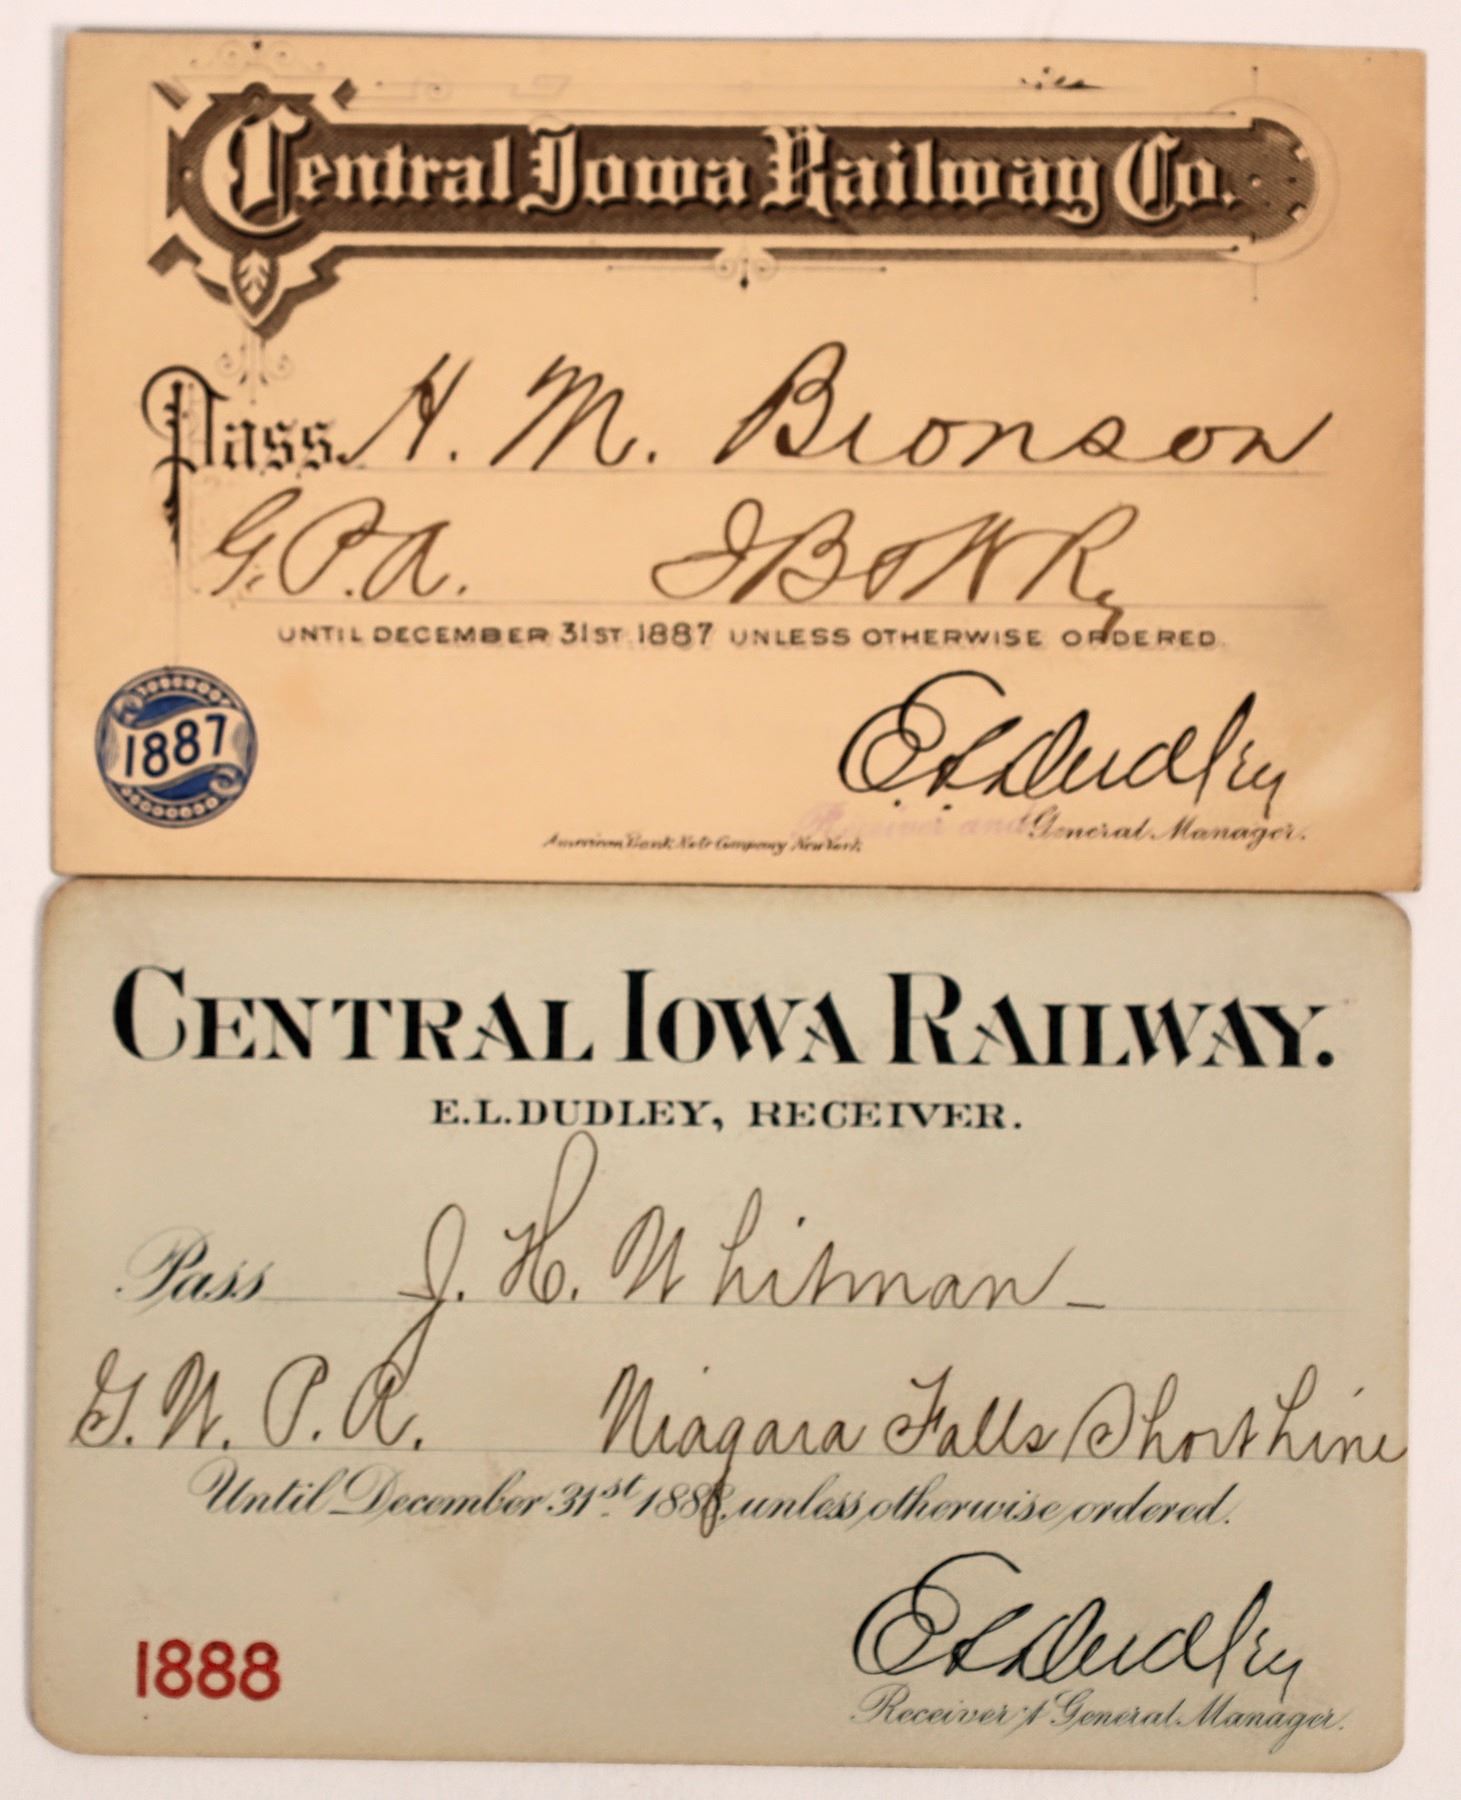 Central Iowa Railway Co.
Pass H. M. Bronson
G.P.A. I B & W Ry
UNTIL DECEMBER 31ST 1887 UNLESS OTHERWISE ORDERED.
1887
E L Dudley
Receiver and General Manager.
American Bank Note Company New York
CENTRAL IOWA RAILWAY.
E.L. DUDLEY, RECEIVER.
Pass J. H. Whitman
G. W. P. A. Niagara Falls Short Line
Until December 31st 1888, unless otherwise ordered.
1888
E L Dudley
Receiver & General Manager.